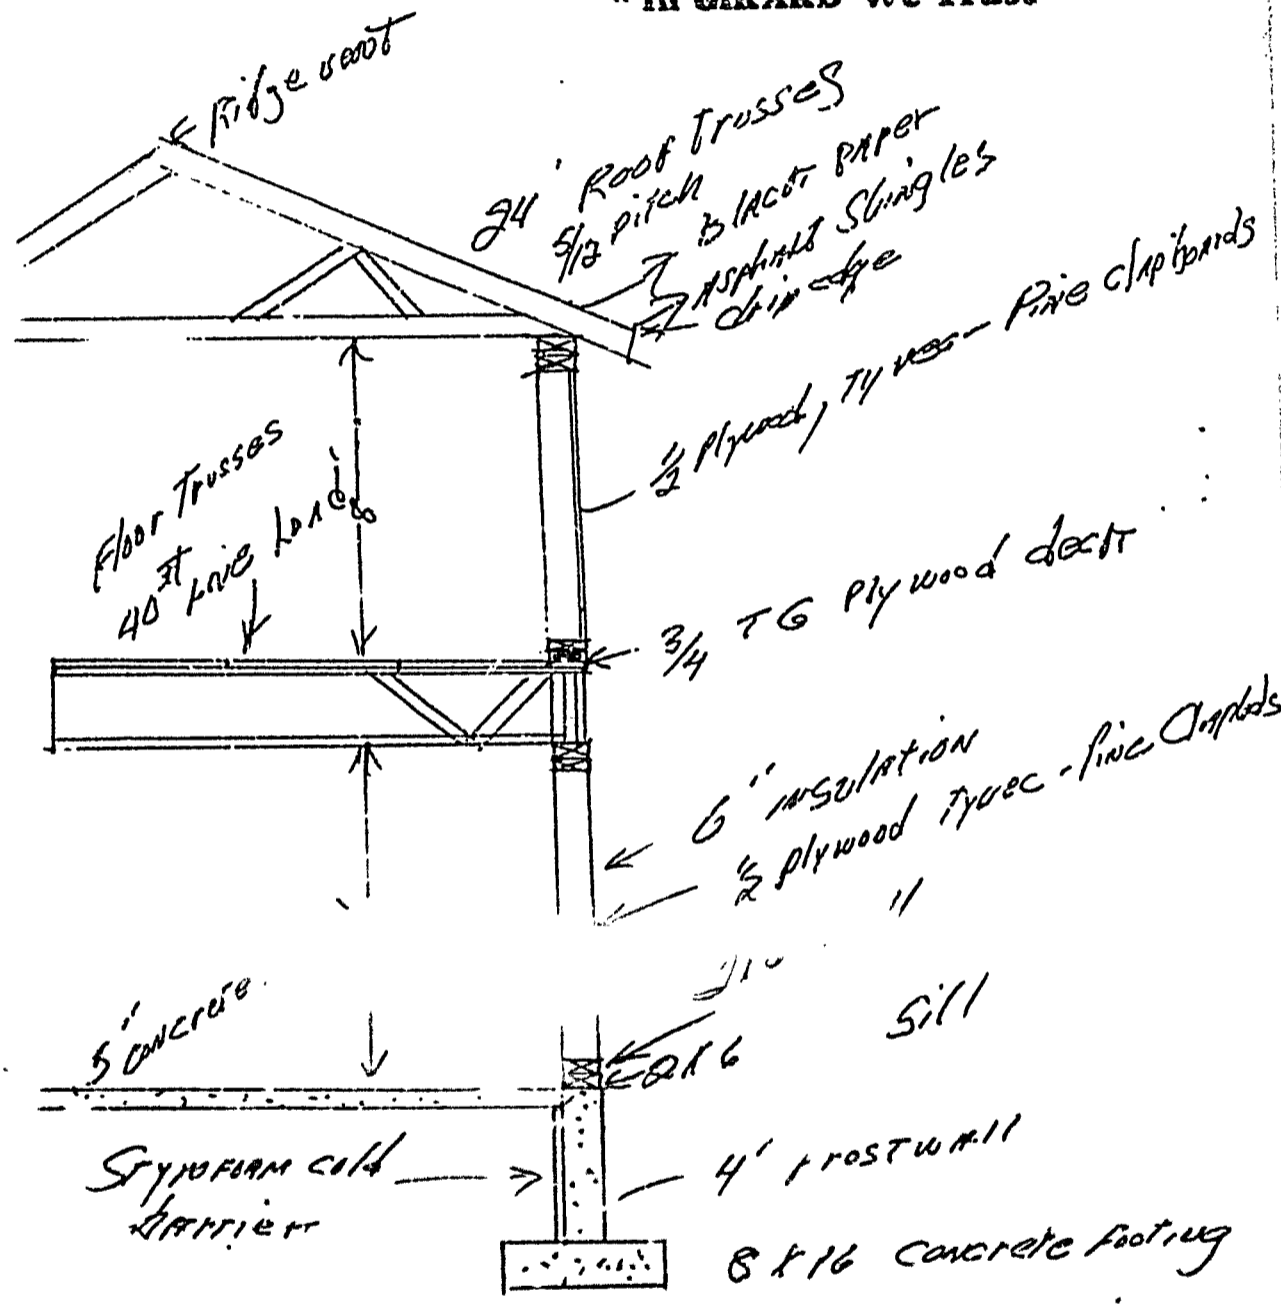 "In GIRARD We Trust"
Ridge vent
24' Roof Trusses
5/12 pitch
Black paper
Asphalt Shingles
drip edge
1/2" Plywood, Tyvec - Pine clapboards
Floor Trusses
40 live
8'
3/4 TG Plywood deck
6" insulation
1/2 plywood Tyvec - Pine Clapbds
"
5" concrete
Sill
2x6
Styrofoam cold
barrier
4' frostwall
8 x 16 concrete footing